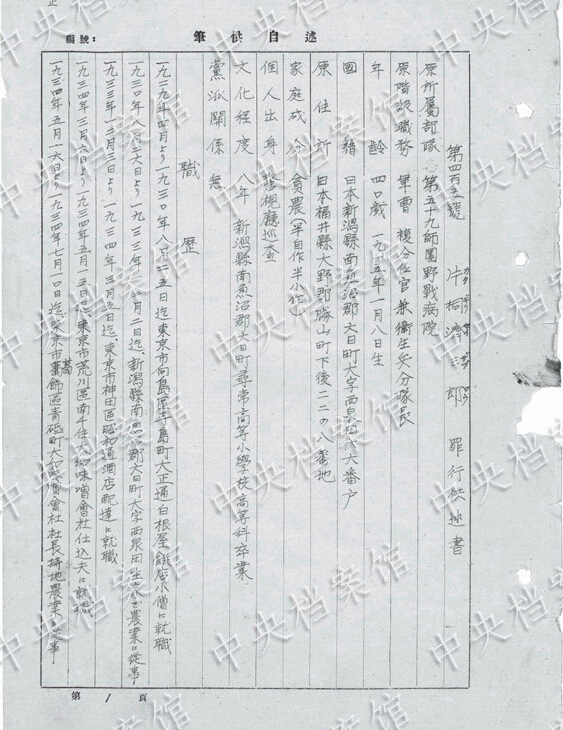 編號:
述自供筆
第四百3號 片桐濟三郎 罪行供述書
原所屬部隊 第五十九師團野戰病院
原階級職務 軍曹 複分任官兼衞生兵分隊長
年齡 四〇歲 一九一五年一月八日生
國籍 日本新潟縣南魚沼郡大日町大字西泉田 大番戶
原住所 日本福井縣大野郡勝山町下後二二〇八番地
家庭成分 貧農(半自作半小作)
個人出身 警視廳巡查
文化程度 八年 新潟縣南魚沼郡大日町尋常高等小學校高等科卒業
黨派關係 無
職歷
一九二九年四月より一九三〇年八月二五日迄 東京市向島區寺島町大正通白根屋餅店小僧に就職
一九三〇年八月二六日より一九三三年一二月二日迄、新潟縣南魚沼郡大日町大字西泉田生家で農業に從事
一九三三年一二月三日より一九三四年三月五日迄、東京市神田區昭和通酒店配達に就職
一九三四年三月六日より一九三四年五月一五日迄、東京市荒川區南千住大 味噌會社仕込夫に就職
一九三四年五月一六日より一九三四年七月一〇日迄、東京市葛飾區青砥町大 味噌會社社長 地農業に從事
第 1 頁
中央档案馆